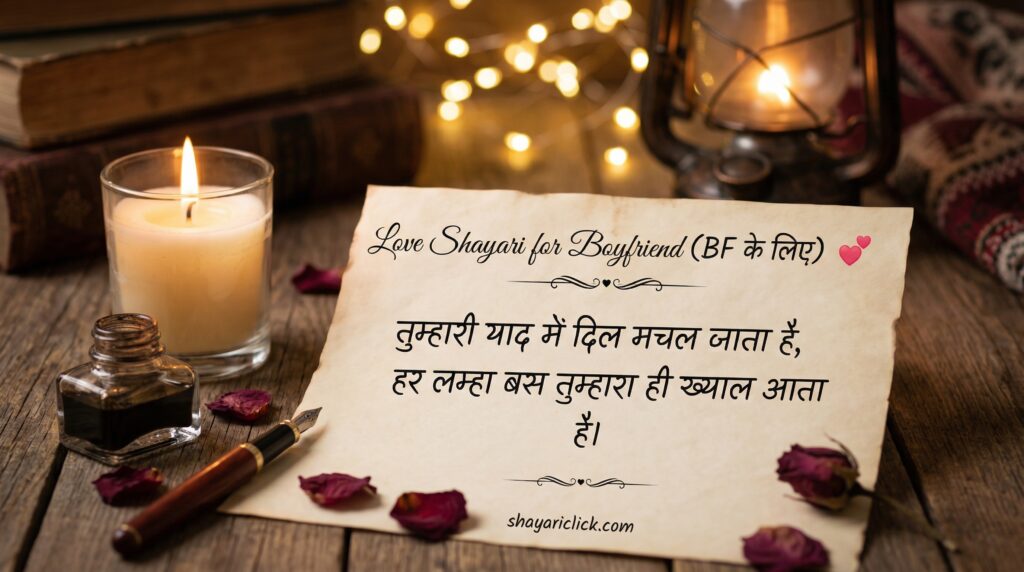 Love Shayari for Boyfriend (BF के लिए) 💕
तुम्हारी याद में दिल मचल जाता है,
हर लम्हा बस तुम्हारा ही ख्याल आता
है।
shayariclick.com